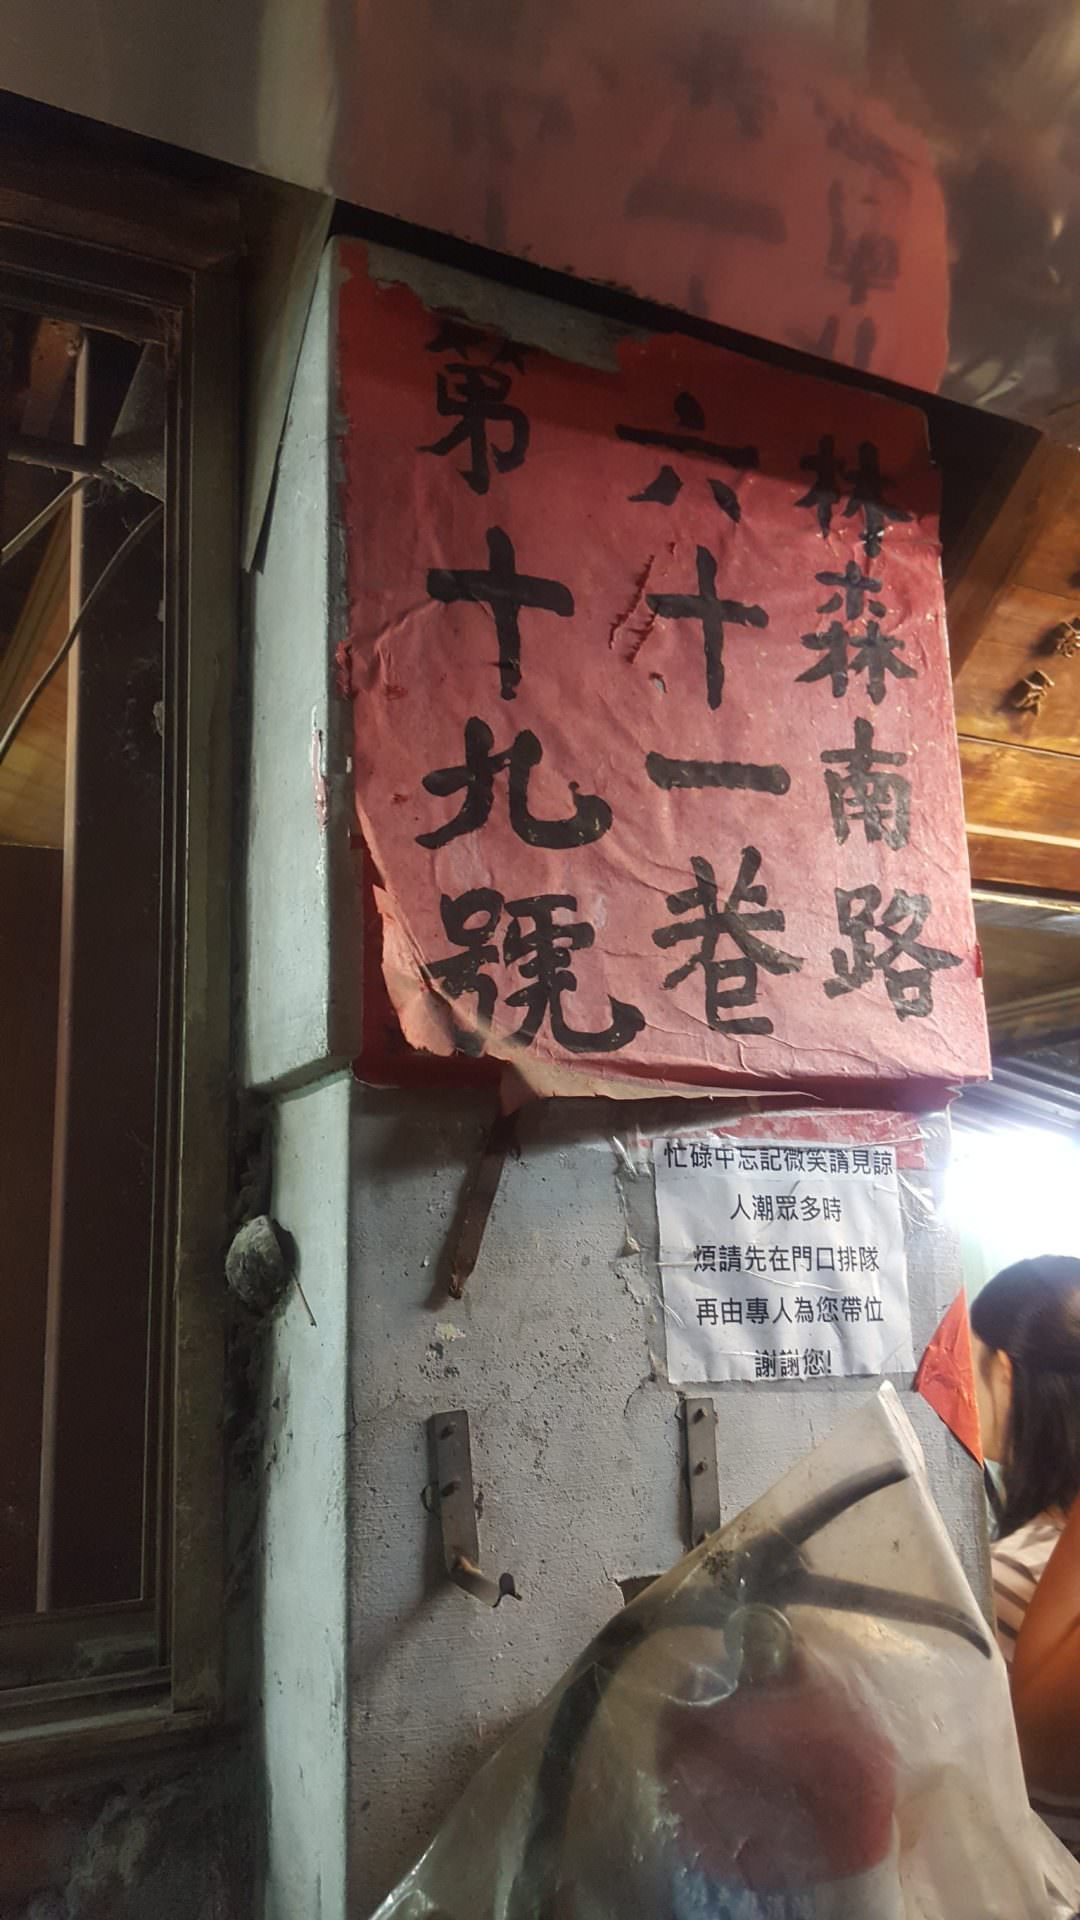 林森南路
六十一巷
第十九號
忙碌中忘記微笑請見諒
人潮眾多時
煩請先在門口排隊
再由專人為您帶位
謝謝您!